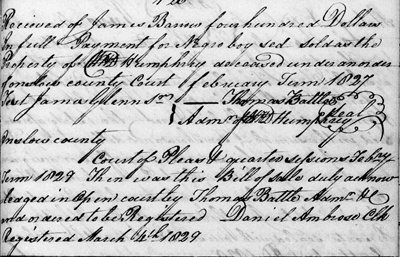 Received of James Barrow four hundred Dollars
In full Payment for Negro boy sed sold as the
Property of Humphrey deceased under an order
of onslow county Court February Term 1827
Test James Glenn Sr Thomas Battle
Admr Humphrey seal
Onslow county
Court of Pleas & quarter sessions Feby
Term 1829 Then was this Bill of sale duly acknow
ledged in Open court by Thomas Battle Admr &c
and ordered to be Registered Daniel Ambrose Clk
Registered March 4th 1829